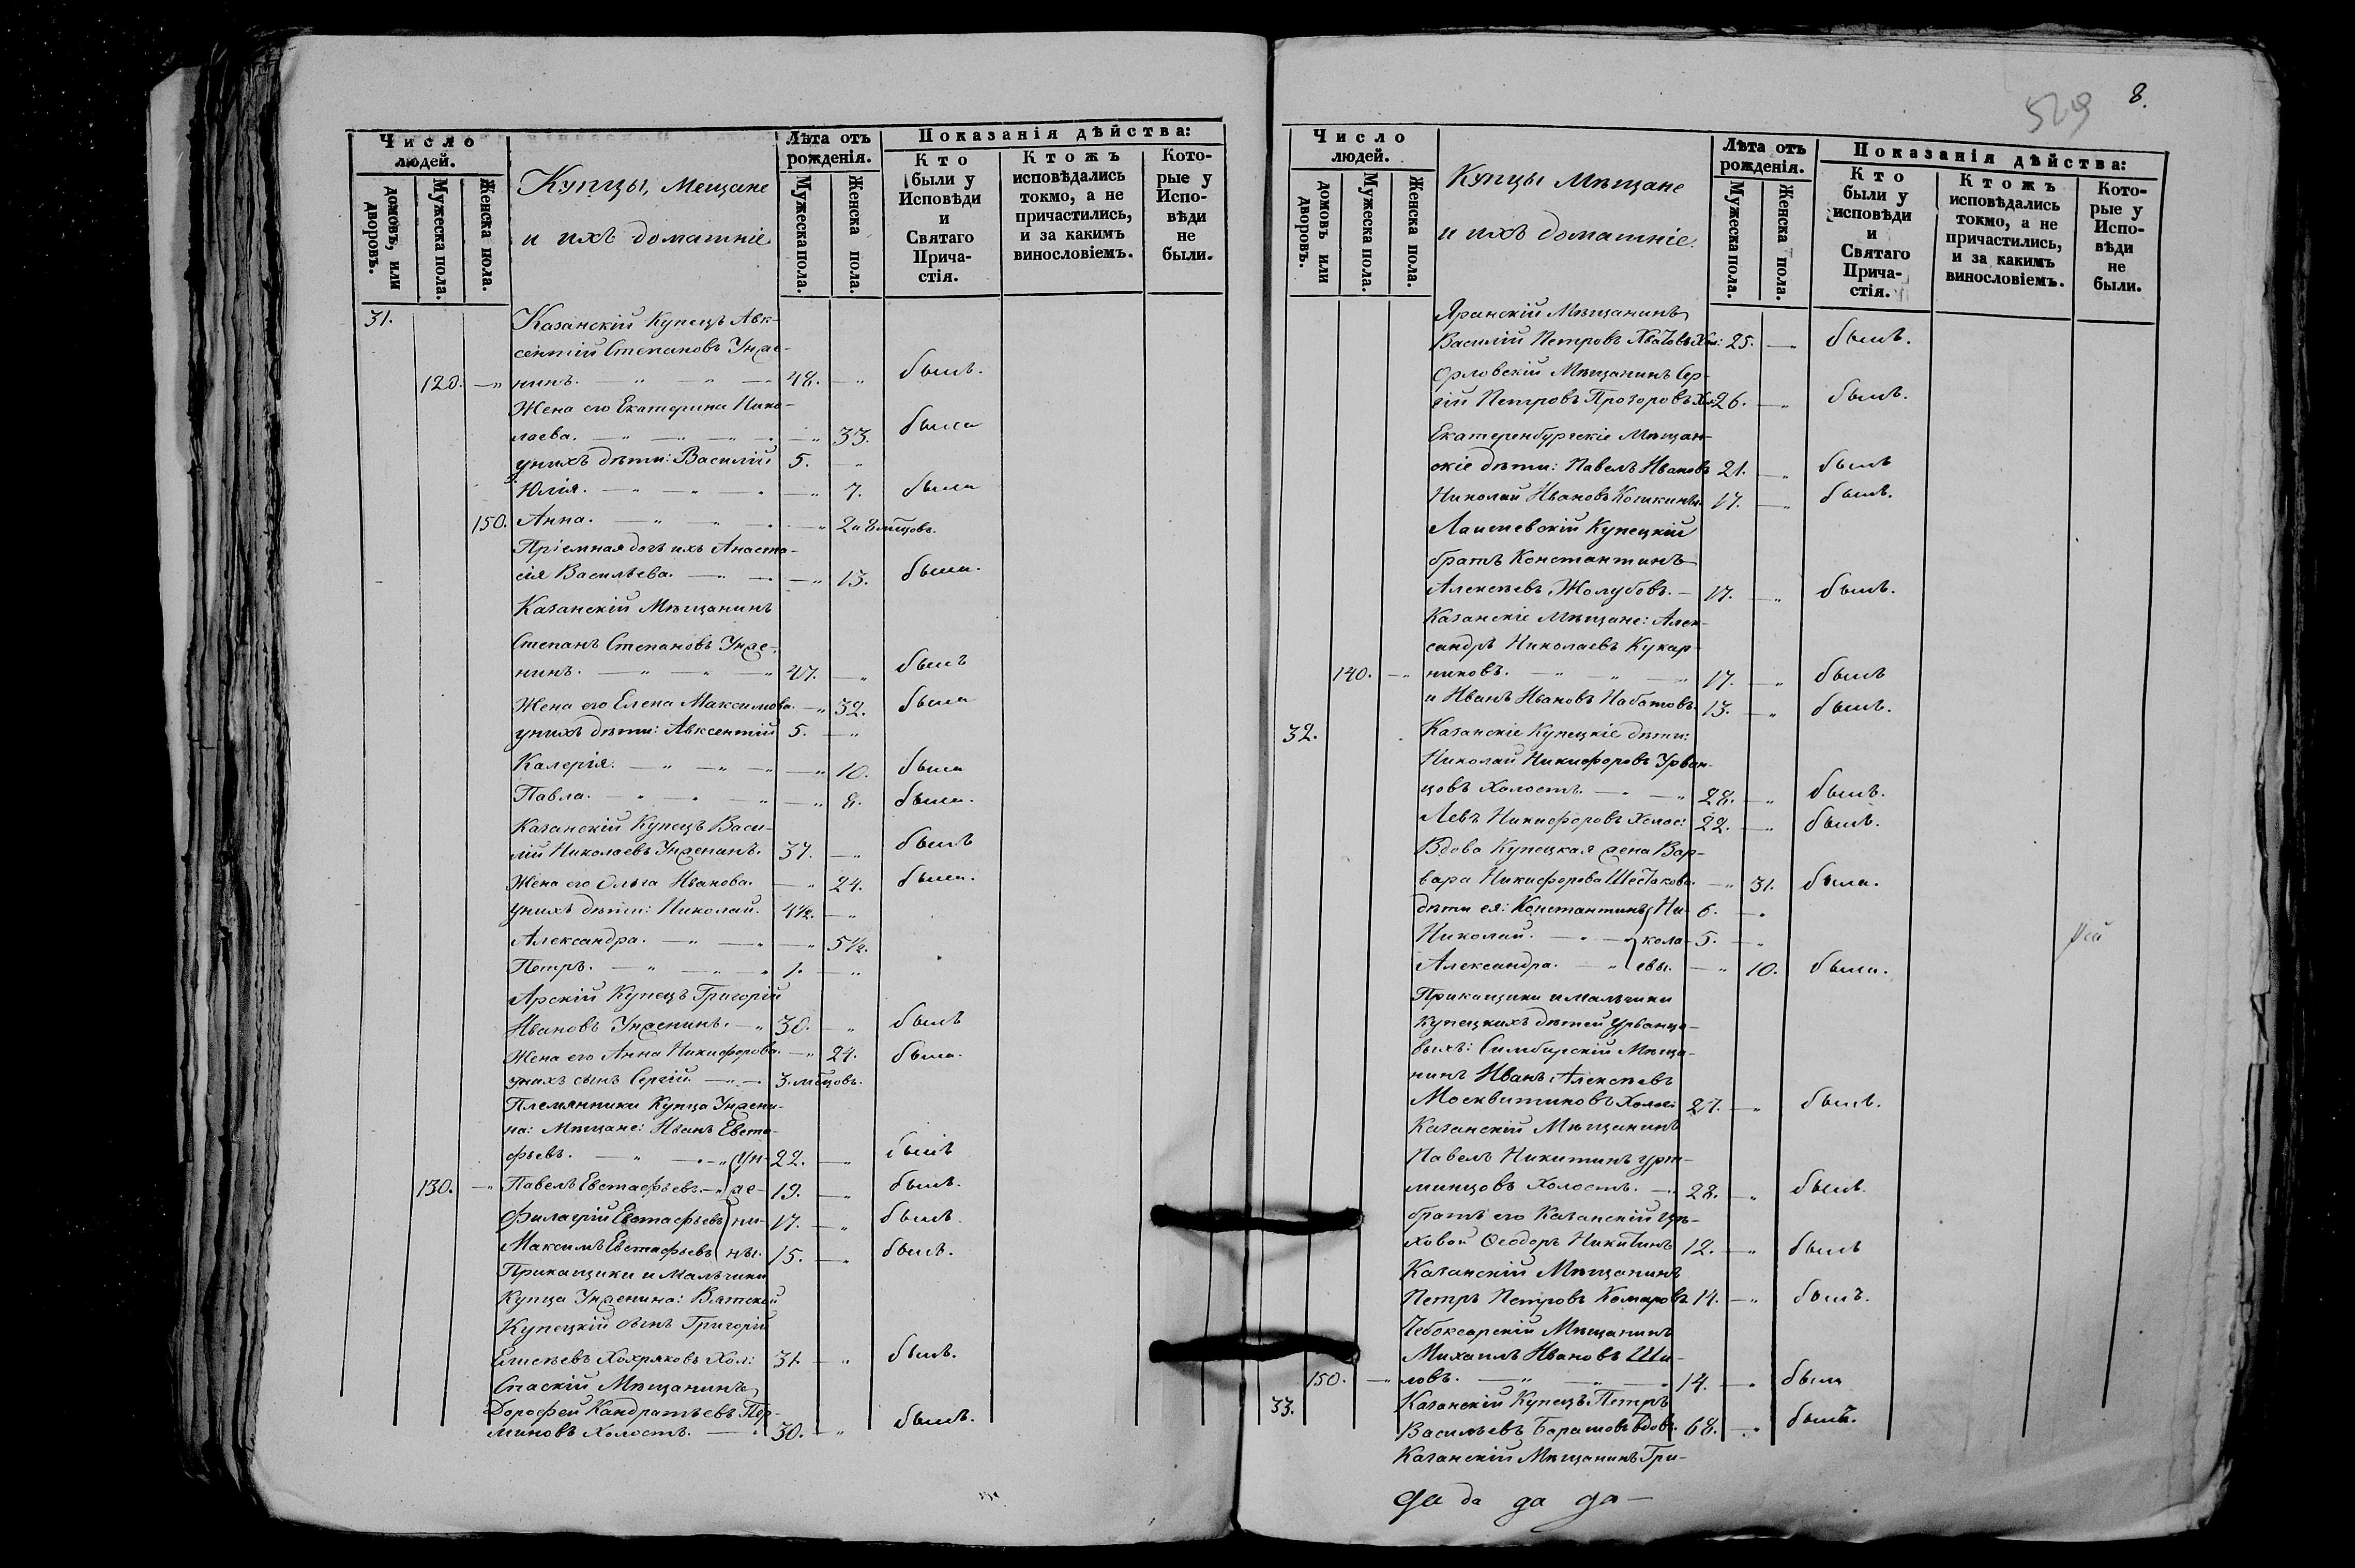 Число людей.
домовъ, или дворовъ.
Мужеска пола.
Женска пола.
Купцы, Мещане
и ихъ домашніе
Лѣта отъ рожденія.
Мужеска пола.
Женска пола.
Показанія дѣйства:
Кто были у Исповѣди и Святаго Прича-стія.
Ктожъ исповѣдались токмо, а не причастились, и за какимъ винословіемъ.
Кото-рые у Испо-вѣди не были.
31. Казанскій Купецъ Авк-
сентій Степановъ Унже-
120. —„ нинъ. — „ — „ — 48. — „ былъ.
Жена его Екатерина Нико-
лаева. — „ — „ — „ — „ 33. была
у нихъ дѣти: Василій 5. — „
Юлія. — „ — „ — „ 7. была
150. Анна. — „ — „ — „ 2 и 8 мѣцовъ.
Пріемная дочь ихъ Анаста-
сія Васильева. — „ — „ 13. была.
Казанскій Мѣщанинъ
Степанъ Степановъ Унже-
нинъ. — „ — „ 47. — „ былъ
Жена его Елена Максимова. — „ 32. была
у нихъ дѣти: Авксентій 5. — „
Калерія. — „ — „ — „ 10. была
Павла. — „ — „ — „ 8. была.
Казанскій Купецъ Васи-
лій Николаевъ Унженинъ. 37. — „ былъ
Жена его Ольга Иванова. — „ 24. была.
у нихъ дѣти: Николай. 4½. — „
Александра. — „ — „ — „ 5½.
Петръ. — „ — „ 1. — „
Арскій Купецъ Григорій
Ивановъ Унженинъ. — „ 30. — „ былъ
Жена его Анна Никифорова. — „ 24. была.
у нихъ сынъ Сергій. — „ — 3. мѣцовъ.
Племянники Купца Унжени-
на: Мѣщане: Иванъ Евста-
фьевъ. — „ — „ Ун- 22. — „ былъ
130. —„ Павелъ Евстафьевъ — „ же- 19. — „ былъ.
Филагрій Евстафьевъ ни- 17. — „ былъ.
Максимъ Евстафьевъ ны. 15. — „ былъ.
Прикащики и Мальчики
Купца Унженина: Вятской
Купецкій сынъ Григорій
Елисѣевъ Хохряковъ Хол: 31. — „ былъ.
Спаскій Мѣщанинъ
Дорофей Кандратьевъ Пер-
миновъ Холостъ. — „ 30. — „ былъ.
529 8.
Число людей.
домовъ или дворовъ.
Мужеска пола.
Женска пола.
Купцы Мѣщане
и ихъ домашніе.
Лѣта отъ рожденія.
Мужеска пола.
Женска пола.
Показанія дѣйства:
Кто были у исповѣди и Святаго Прича-стія.
Ктожъ исповѣдались токмо, а не причастились, и за какимъ винословіемъ.
Кото-рые у Испо-вѣди не были.
Яранскій Мѣщанинъ
Василій Петровъ Хватовъ Хол: 25. — былъ.
Орловскій Мѣщанинъ Сер-
гій Петровъ Прозоровъ Хол: 26. — „ былъ.
Екатеринбургскіе Мѣщан-
скіе дѣти: Павелъ Ивановъ 21. — „ былъ
Николай Ивановъ Кошкины. 17. — „ былъ.
Лаишевскій Купецкій
братъ Константинъ
Алексѣевъ Жолубовъ. — 17. — „ былъ.
Казанскіе Мѣщане: Алек-
сандръ Николаевъ Кукар-
140. —„ никовъ. — „ — „ 17. — „ былъ
и Иванъ Ивановъ Набатовъ. 13. — „ былъ.
32. Казанскіе Купецкіе дѣти:
Николай Никифоровъ Урван-
цовъ Холостъ. — „ — „ 28. — „ былъ.
Левъ Никифоровъ Холос: 22. — „ былъ.
Вдова Купецкая жена Вар-
вара Никифорова Шестакова. — „ 31. была.
дѣти ея: Константинъ Ни- 6. — „
Николай. — „ — кола- 5. — „
Александра. — „ евы. — „ 10. была.
Прикащики и мальчики
Купецкихъ дѣтей Урванцо-
выхъ: Симбирскій Мѣща-
нинъ Иванъ Алексѣевъ
Москвитиновъ Холос: 27. — „ былъ.
Казанскій Мѣщанинъ
Павелъ Никитинъ Урт-
минцовъ Холостъ. — „ 28. — „ былъ.
братъ его Казанскій Цѣ-
ховой Ѳеодоръ Никитинъ 12. — „ былъ
Казанскій Мѣщанинъ
Петръ Петровъ Комаровъ. 14. — „ былъ.
Чебоксарскій Мѣщанинъ
Михаилъ Ивановъ Ши-
150. —„ ловъ. — „ — „ — 14. — „ былъ
33. Казанскій Купецъ Петръ
Васильевъ Барашовъ вдовъ. 68. — „ былъ.
Казанскій Мѣщанинъ Гри-
да да да да —